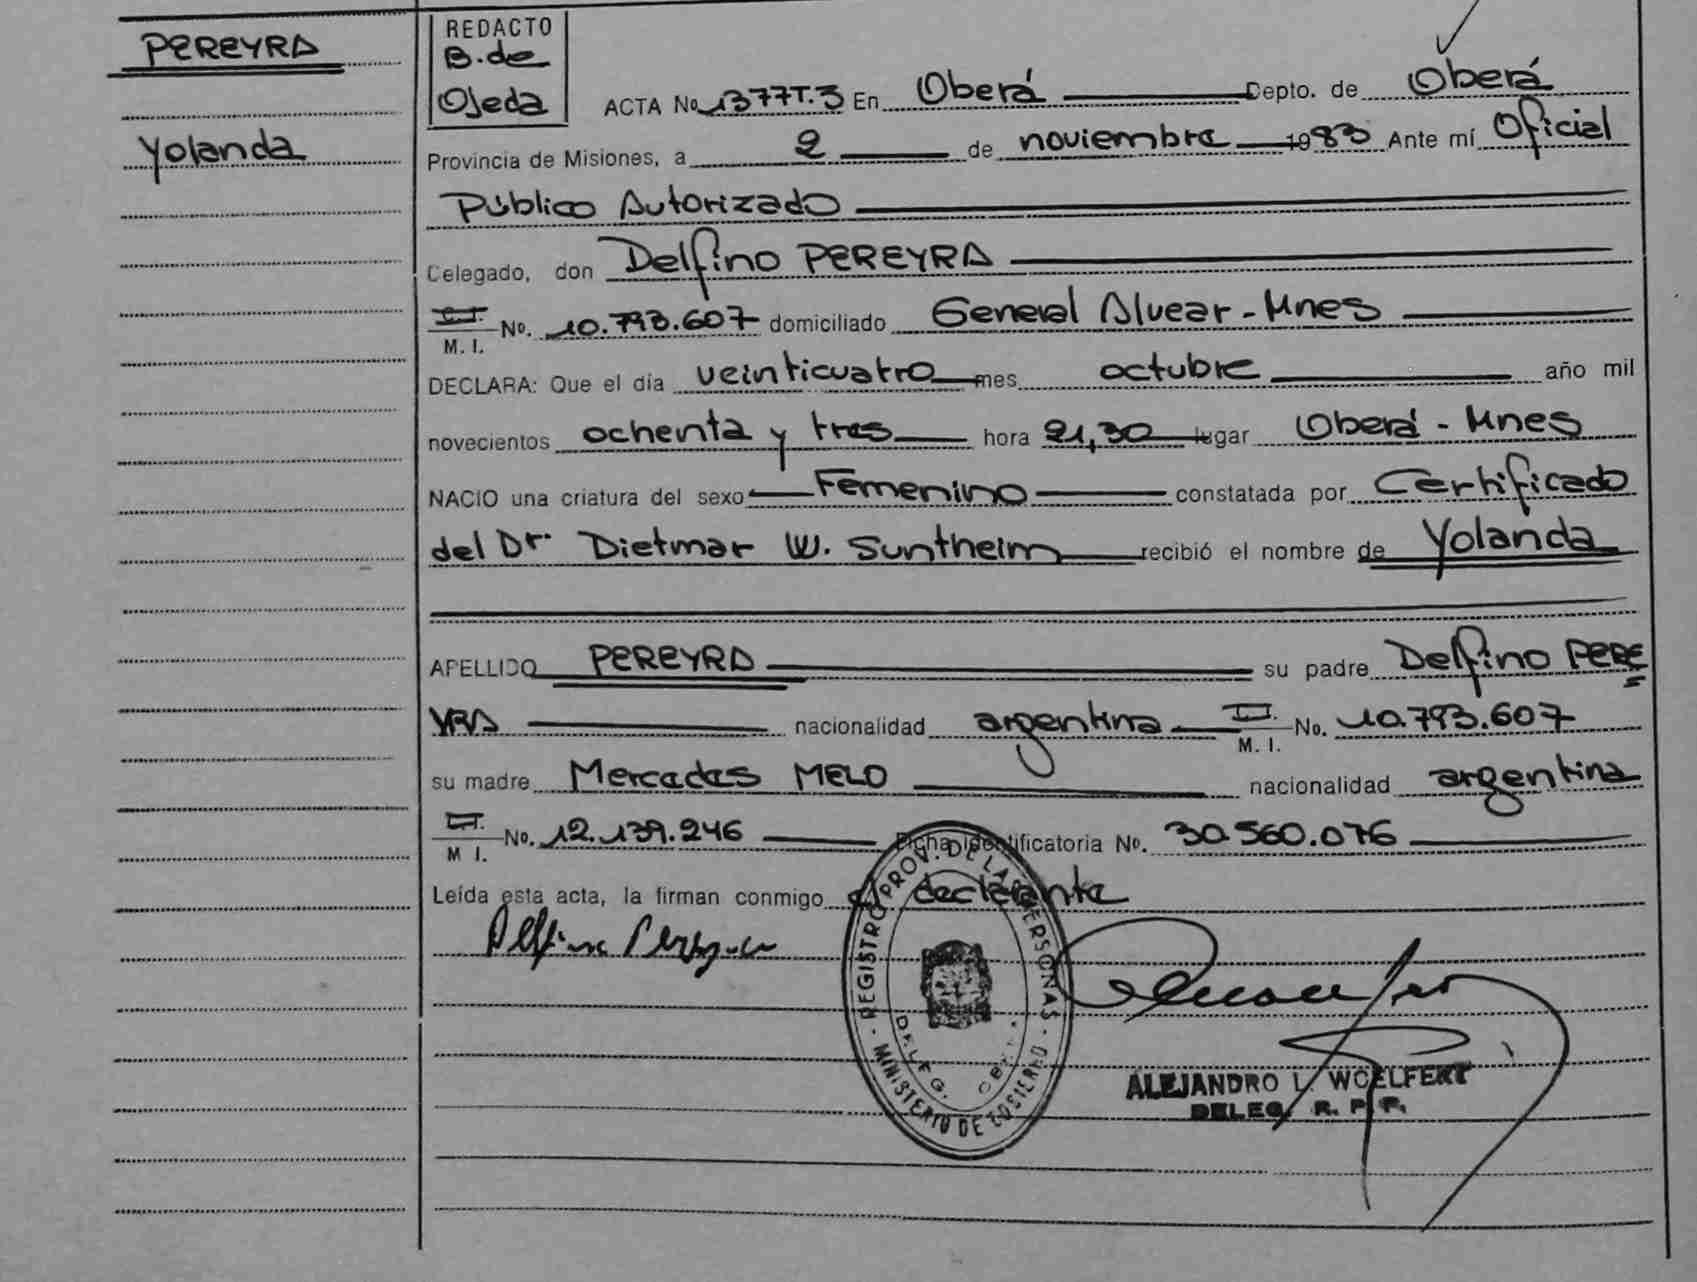 PEREYRA
Yolanda
REDACTO
B. de
Ojeda
ACTA No 1377T.3 En Oberá Depto. de Oberá
Provincia de Misiones, a 2 de noviembre 1983 Ante mí Oficial
Público Autorizado
Delegado, don Delfino PEREYRA
C.I. No. 10.793.607 domiciliado General Alvear - Mnes
M. I.
DECLARA: Que el día veinticuatro mes octubre año mil
novecientos ochenta y tres hora 21,30 lugar Oberá - Mnes
NACIO una criatura del sexo Femenino constatada por Certificado
del Dr. Dietmar W. Suntheim recibió el nombre de Yolanda
APELLIDO PEREYRA su padre Delfino PERE
YRA nacionalidad argentina C.I. No. 10.793.607
M. I.
su madre Mercedes MELO nacionalidad argentina
C.I. No. 12.139.246 Ficha identificatoria No. 30.560.076
M I.
Leída esta acta, la firman conmigo el declarante
Delfino Pereyra
REGISTRO PROV. DE LAS PERSONAS
MINISTERIO DE GOBIERNO
DELEG. OBERA
ALEJANDRO L. WOELFERT
DELEG. R. P. P.